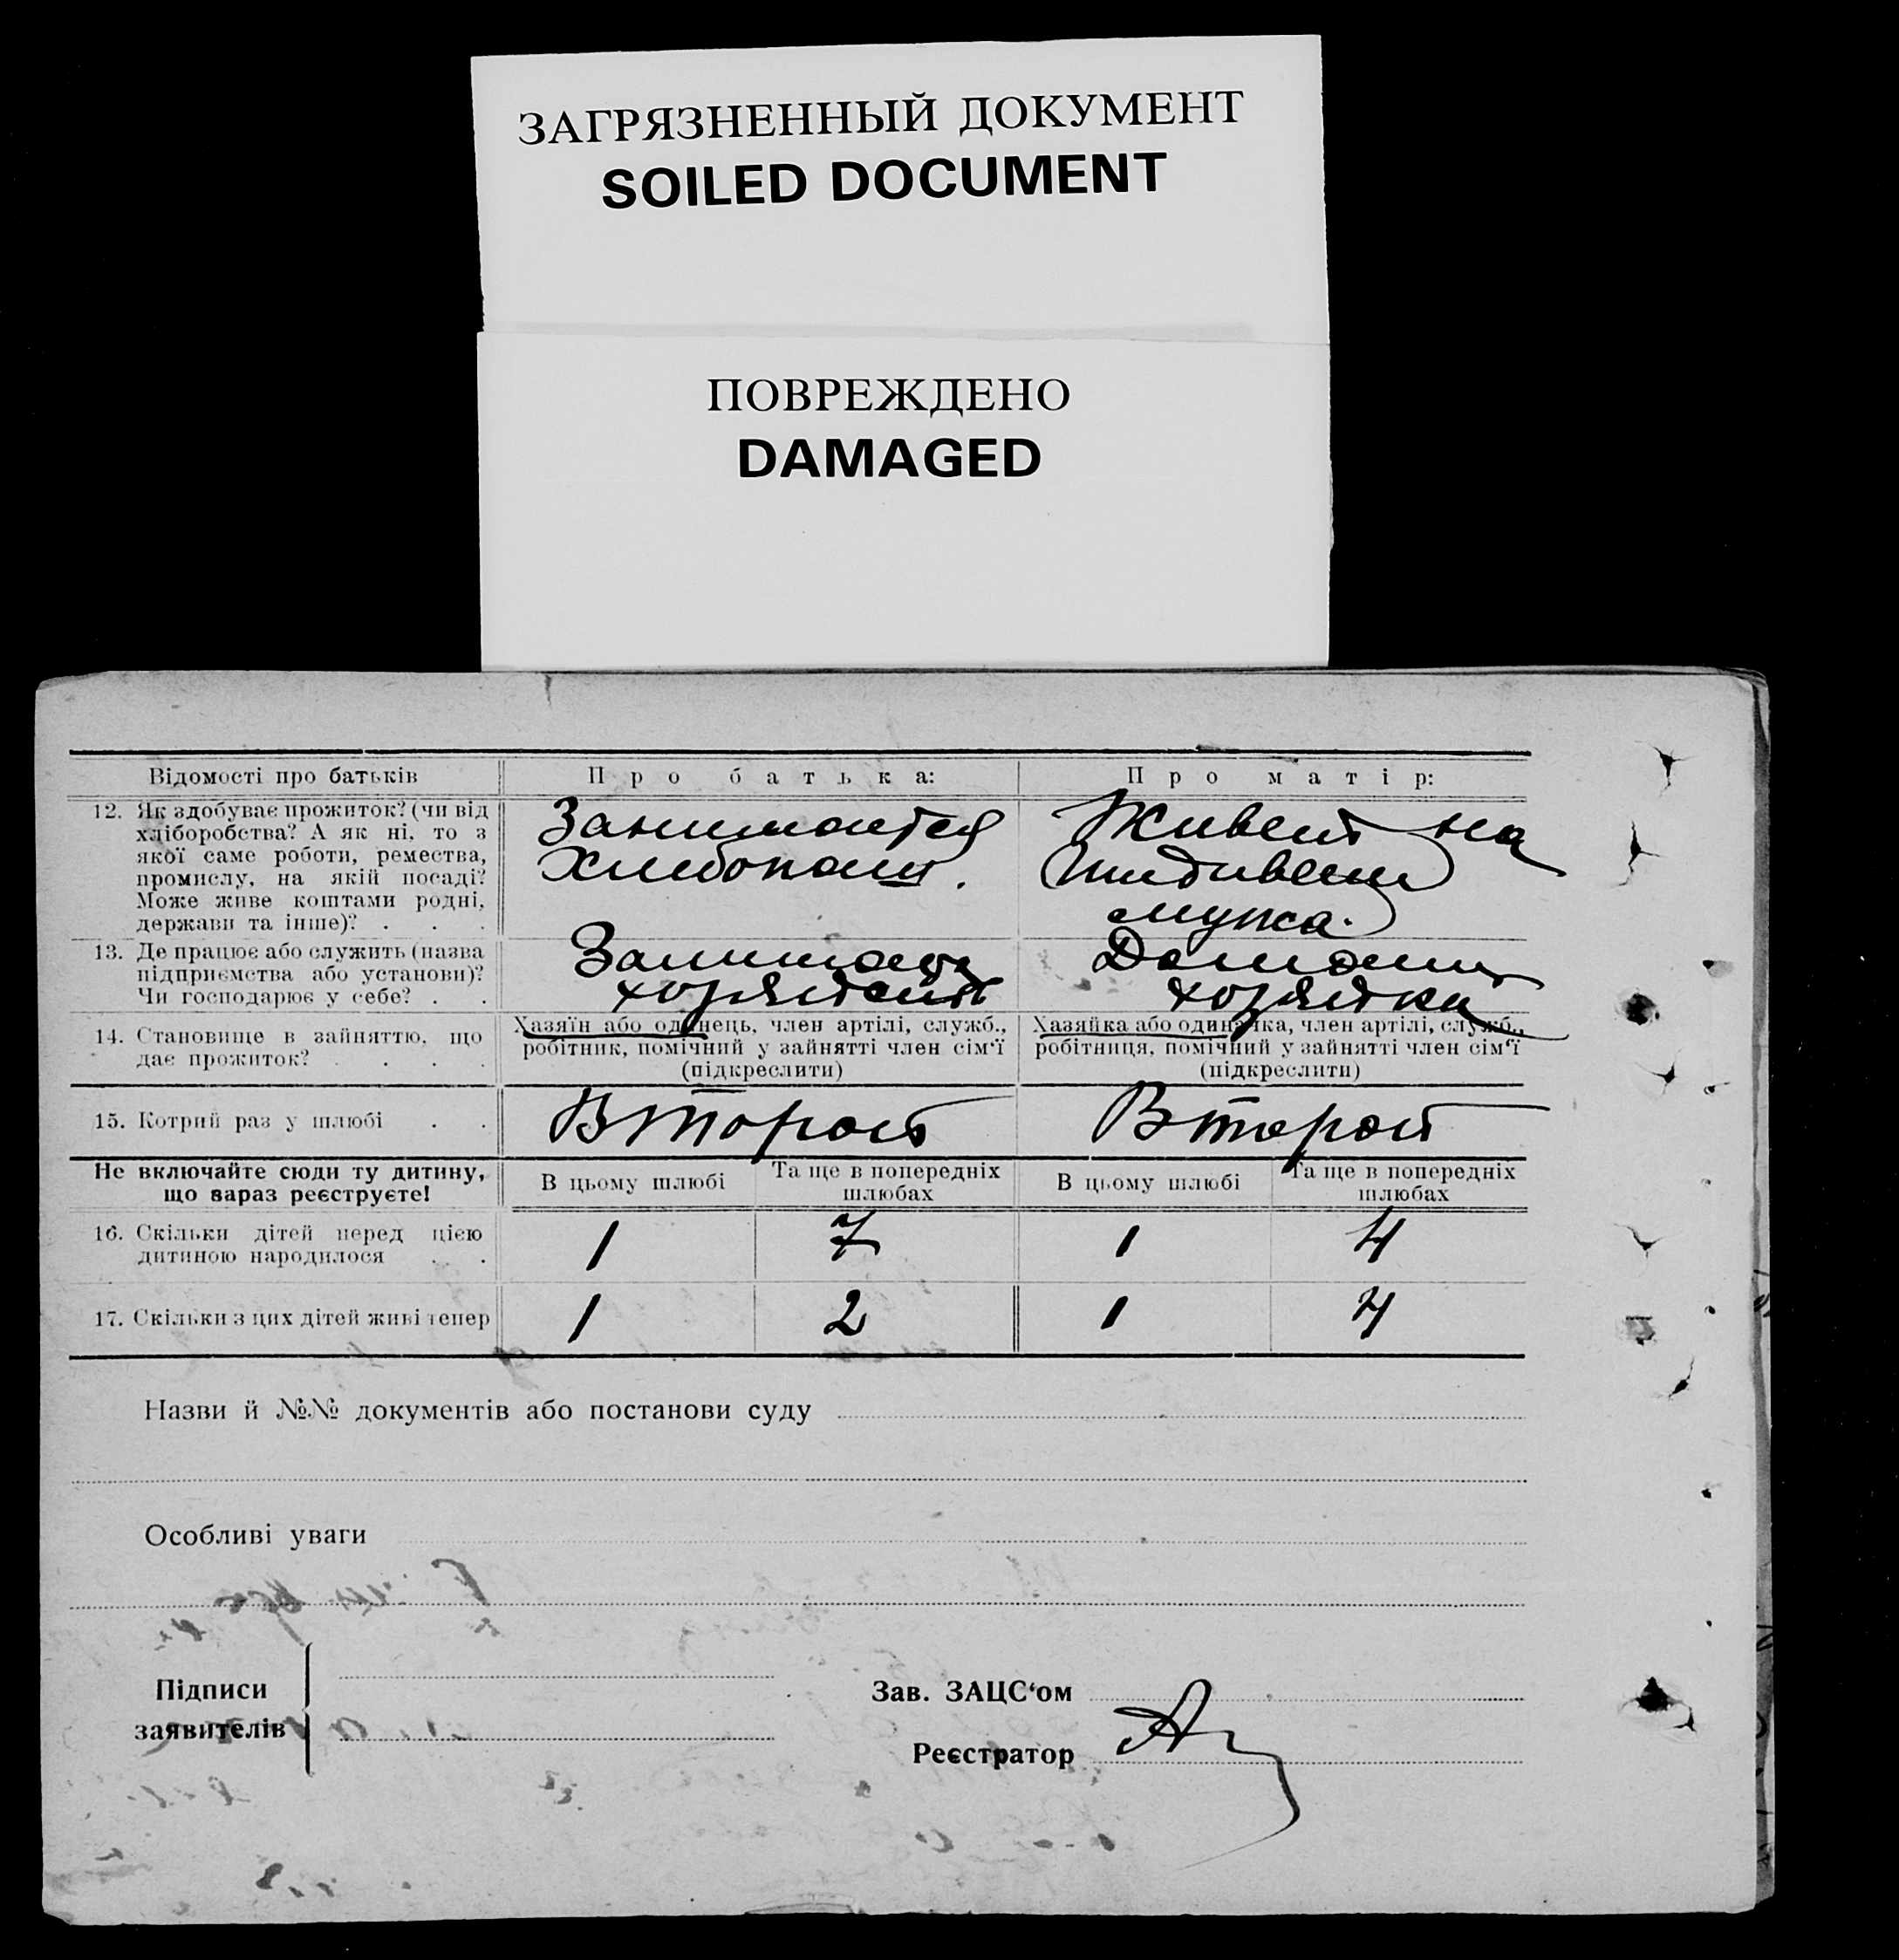 ЗАГРЯЗНЕННЫЙ ДОКУМЕНТ
SOILED DOCUMENT
ПОВРЕЖДЕНО
DAMAGED
Відомості про батьків
Про батька:
Про матір:
12. Як здобуває прожиток? (чи від
хліборобства? А як ні, то з
якої саме роботи, ремества,
промислу, на якій посаді?
Може живе коштами родні,
держави та інше)? . . .
Занимается
Хлебопаш.
Живет на
мужа.
13. Де працює або служить (назва
підприємства або установи)?
Чи господарює у себе? . .
Домашн
хозяйка
14. Становище в зайняттю, що
дає прожиток? . . . .
Хазяїн або одинець, член артілі, служб.,
робітник, помічний у зайнятті член сім'ї
(підкреслити)
Хазяйка або одиначка, член артілі, служб.,
робітниця, помічний у зайнятті член сім'ї
(підкреслити)
15. Котрий раз у шлюбі . .
Второй
Второй
Не включайте сюди ту дитину,
що вараз реєструєте!
В цьому шлюбі
Та ще в попередніх
шлюбах
В цьому шлюбі
Та ще в попередніх
шлюбах
16. Скільки дітей перед цією
дитиною народилося . .
1
7
1
4
17. Скільки з цих дітей живі тепер
1
2
1
4
Назви й №№ документів або постанови суду
Особливі уваги
Підписи
заявителів
Зав. ЗАЦС'ом
Реєстратор